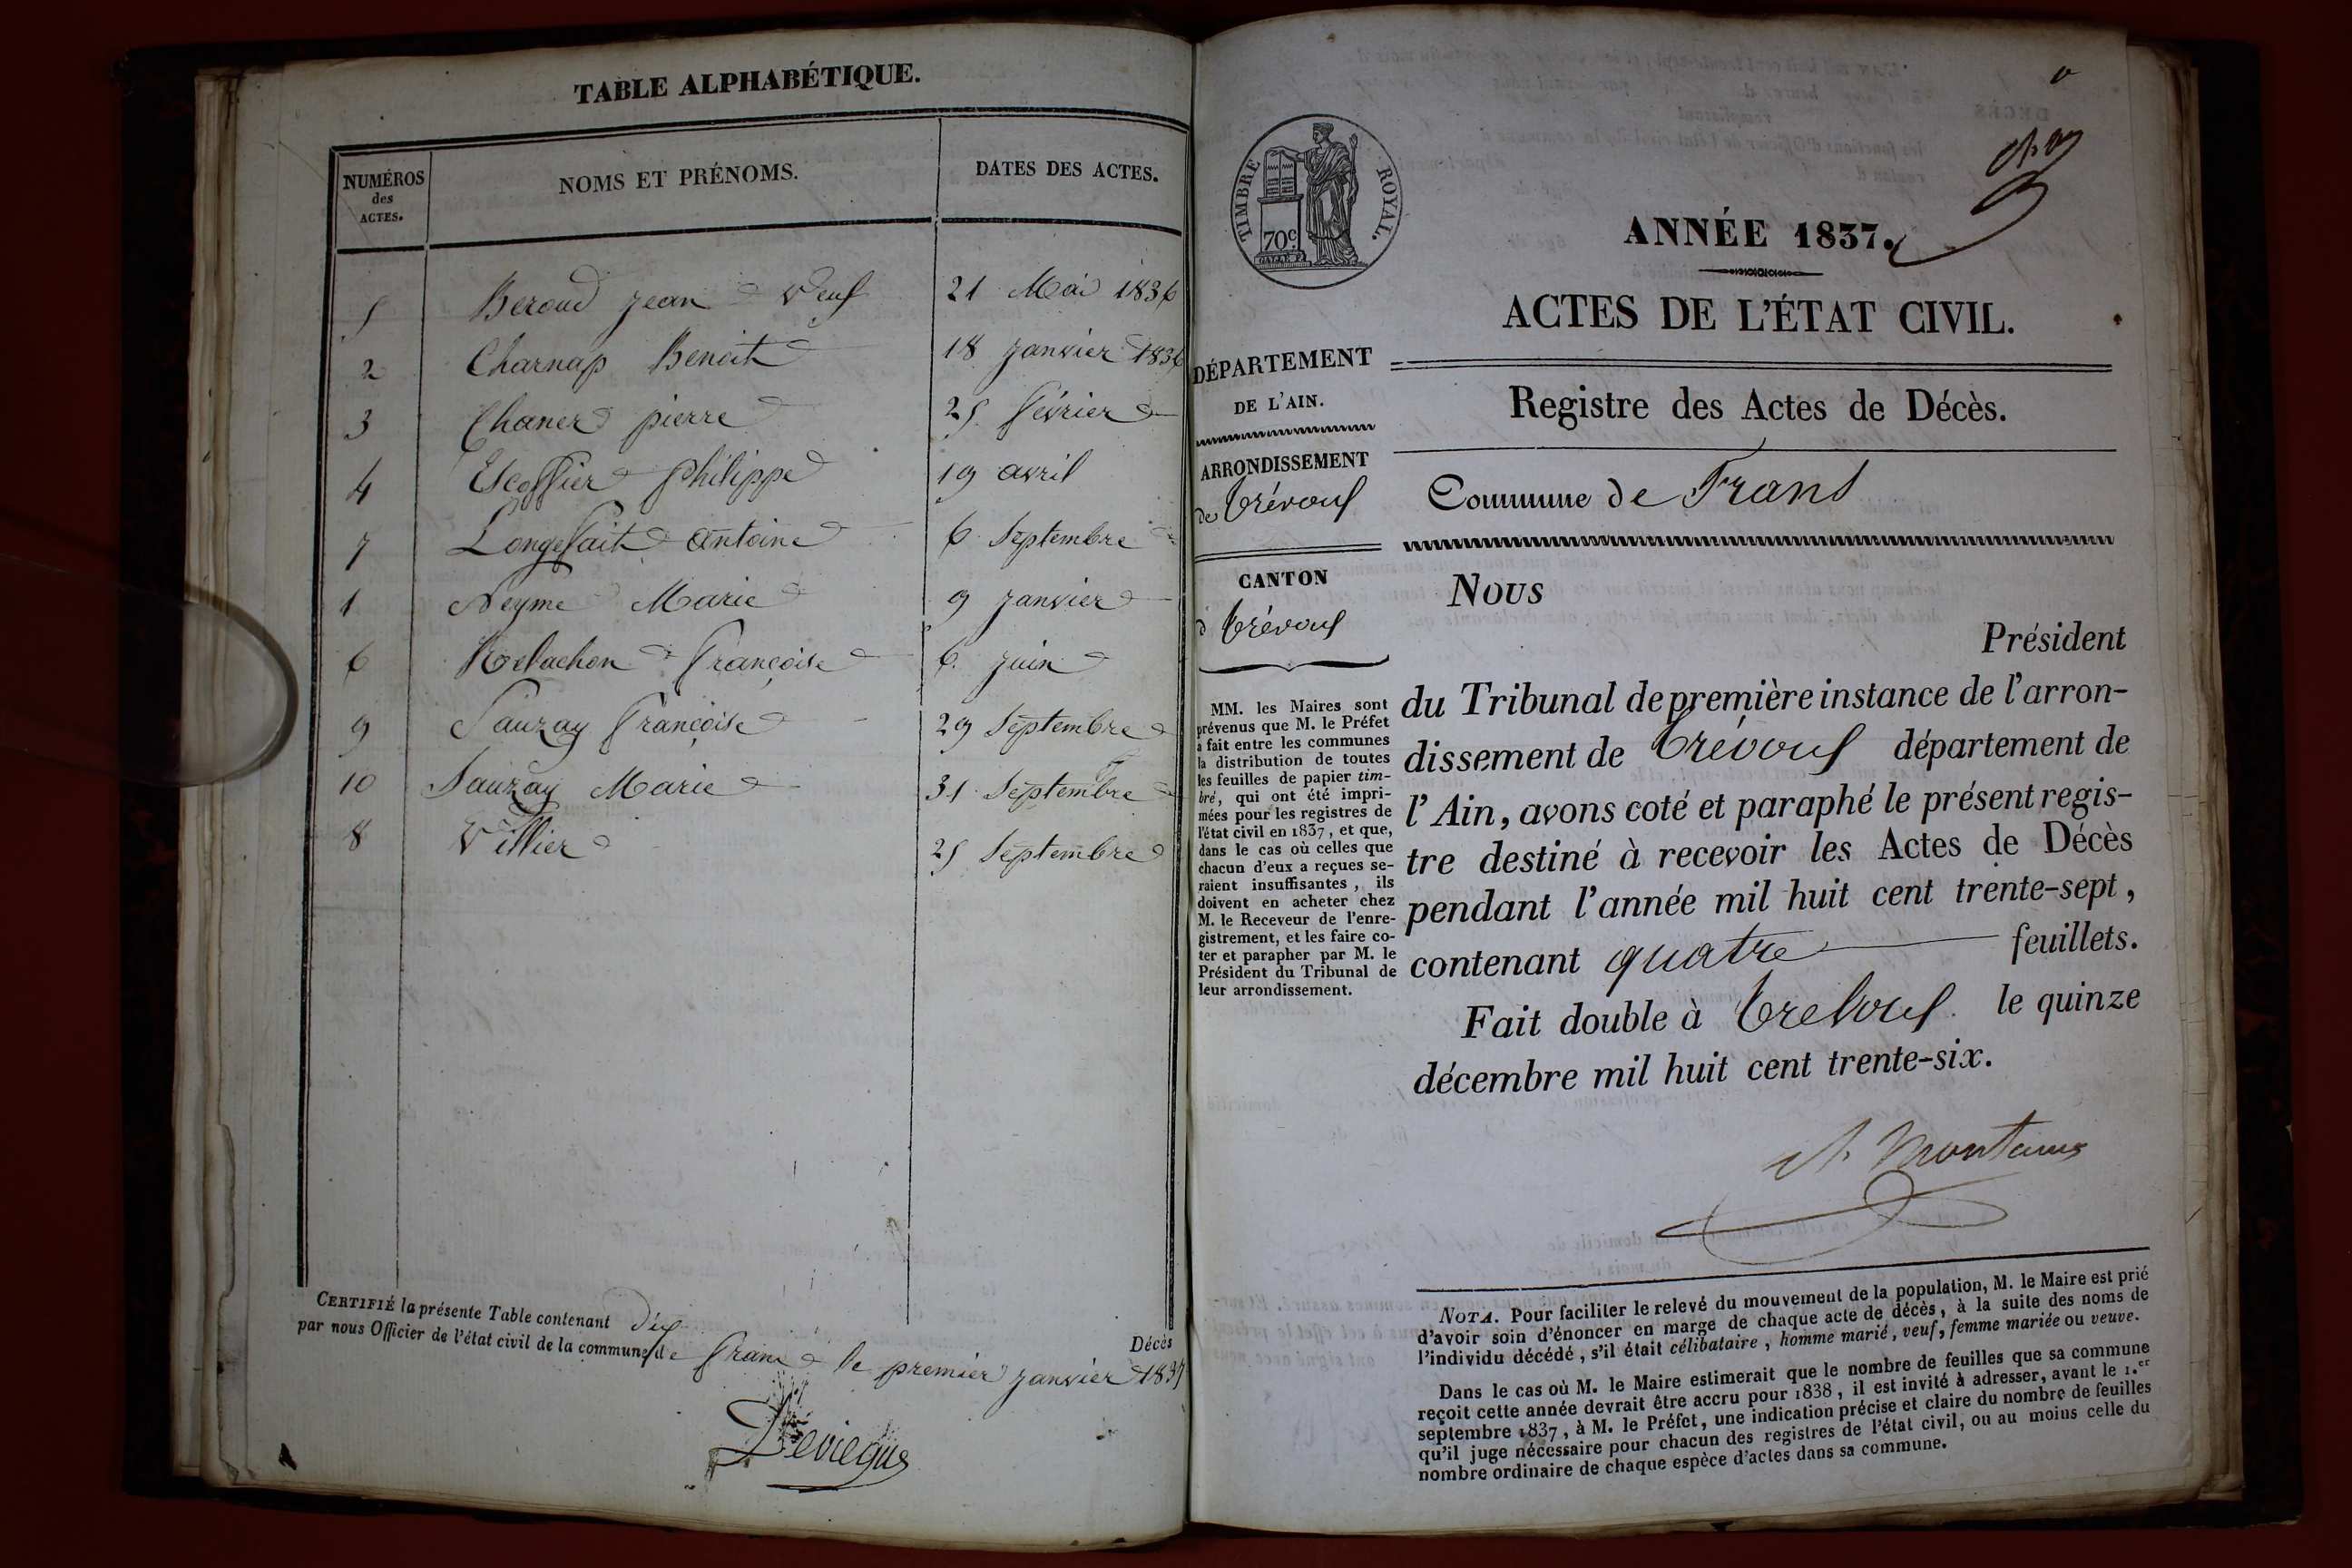 TABLE ALPHABÉTIQUE.
NUMÉROS des ACTES.
NOMS ET PRÉNOMS.
DATES DES ACTES.
5 Beroud jean veuf 21 Mai 1836
2 Charnap Benoit 18 janvier 1836
3 Chaner pierre 25 février
4 Escoffier philippe 19 avril
7 Longefait antoine 6 Septembre
1 Neyme Marie 9 janvier
6 Relachon françoise 6 juin
9 Sauzay françoise 29 Septembre
10 Sauzay Marie 31 Septembre
8 Villier 25 Septembre
CERTIFIÉ la présente Table contenant dix Décès
par nous Officier de l'état civil de la commune de frans le premier janvier 1837
TIMBRE ROYAL.
70c
ANNÉE 1837.
ACTES DE L'ÉTAT CIVIL.
DÉPARTEMENT
DE L'AIN.
ARRONDISSEMENT
de Trévoux
CANTON
d Trévoux
MM. les Maires sont
prévenus que M. le Préfet
a fait entre les communes
la distribution de toutes
les feuilles de papier tim-
bré, qui ont été impri-
mées pour les registres de
l'état civil en 1837, et que,
dans le cas où celles que
chacun d'eux a reçues se-
raient insuffisantes, ils
doivent en acheter chez
M. le Receveur de l'enre-
gistrement, et les faire co-
ter et parapher par M. le
Président du Tribunal de
leur arrondissement.
Registre des Actes de Décès.
Commune de Frans
Nous
Président
du Tribunal de première instance de l'arron-
dissement de Trévoux département de
l'Ain, avons coté et paraphé le présent regis-
tre destiné à recevoir les Actes de Décès
pendant l'année mil huit cent trente-sept,
contenant quatre feuillets.
Fait double à Trevoux le quinze
décembre mil huit cent trente-six.
NOTA. Pour faciliter le relevé du mouvement de la population, M. le Maire est prié
d'avoir soin d'énoncer en marge de chaque acte de décès, à la suite des noms de
l'individu décédé, s'il était célibataire, homme marié, veuf, femme mariée ou veuve.
Dans le cas où M. le Maire estimerait que le nombre de feuilles que sa commune
reçoit cette année devrait être accru pour 1838, il est invité à adresser, avant le 1.er
septembre 1837, à M. le Préfet, une indication précise et claire du nombre de feuilles
qu'il juge nécessaire pour chacun des registres de l'état civil, ou au moins celle du
nombre ordinaire de chaque espèce d'actes dans sa commune.